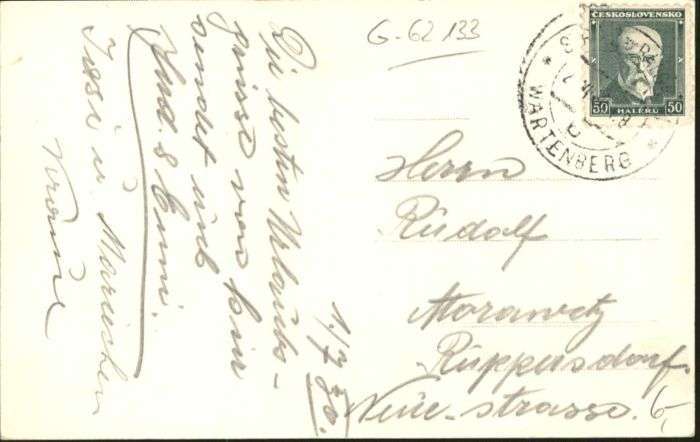 G-62 133
ČESKOSLOVENSKO
50 HALÉŘŮ 50
WARTENBERG
Die besten Urlaubs-
grüsse von hier
sendet
Rud. & Emmi.
u. Mariechen
1./7 30.
Herrn
Rudolf
Morawetz
Ruppersdorf
Neue-strasse. 6,